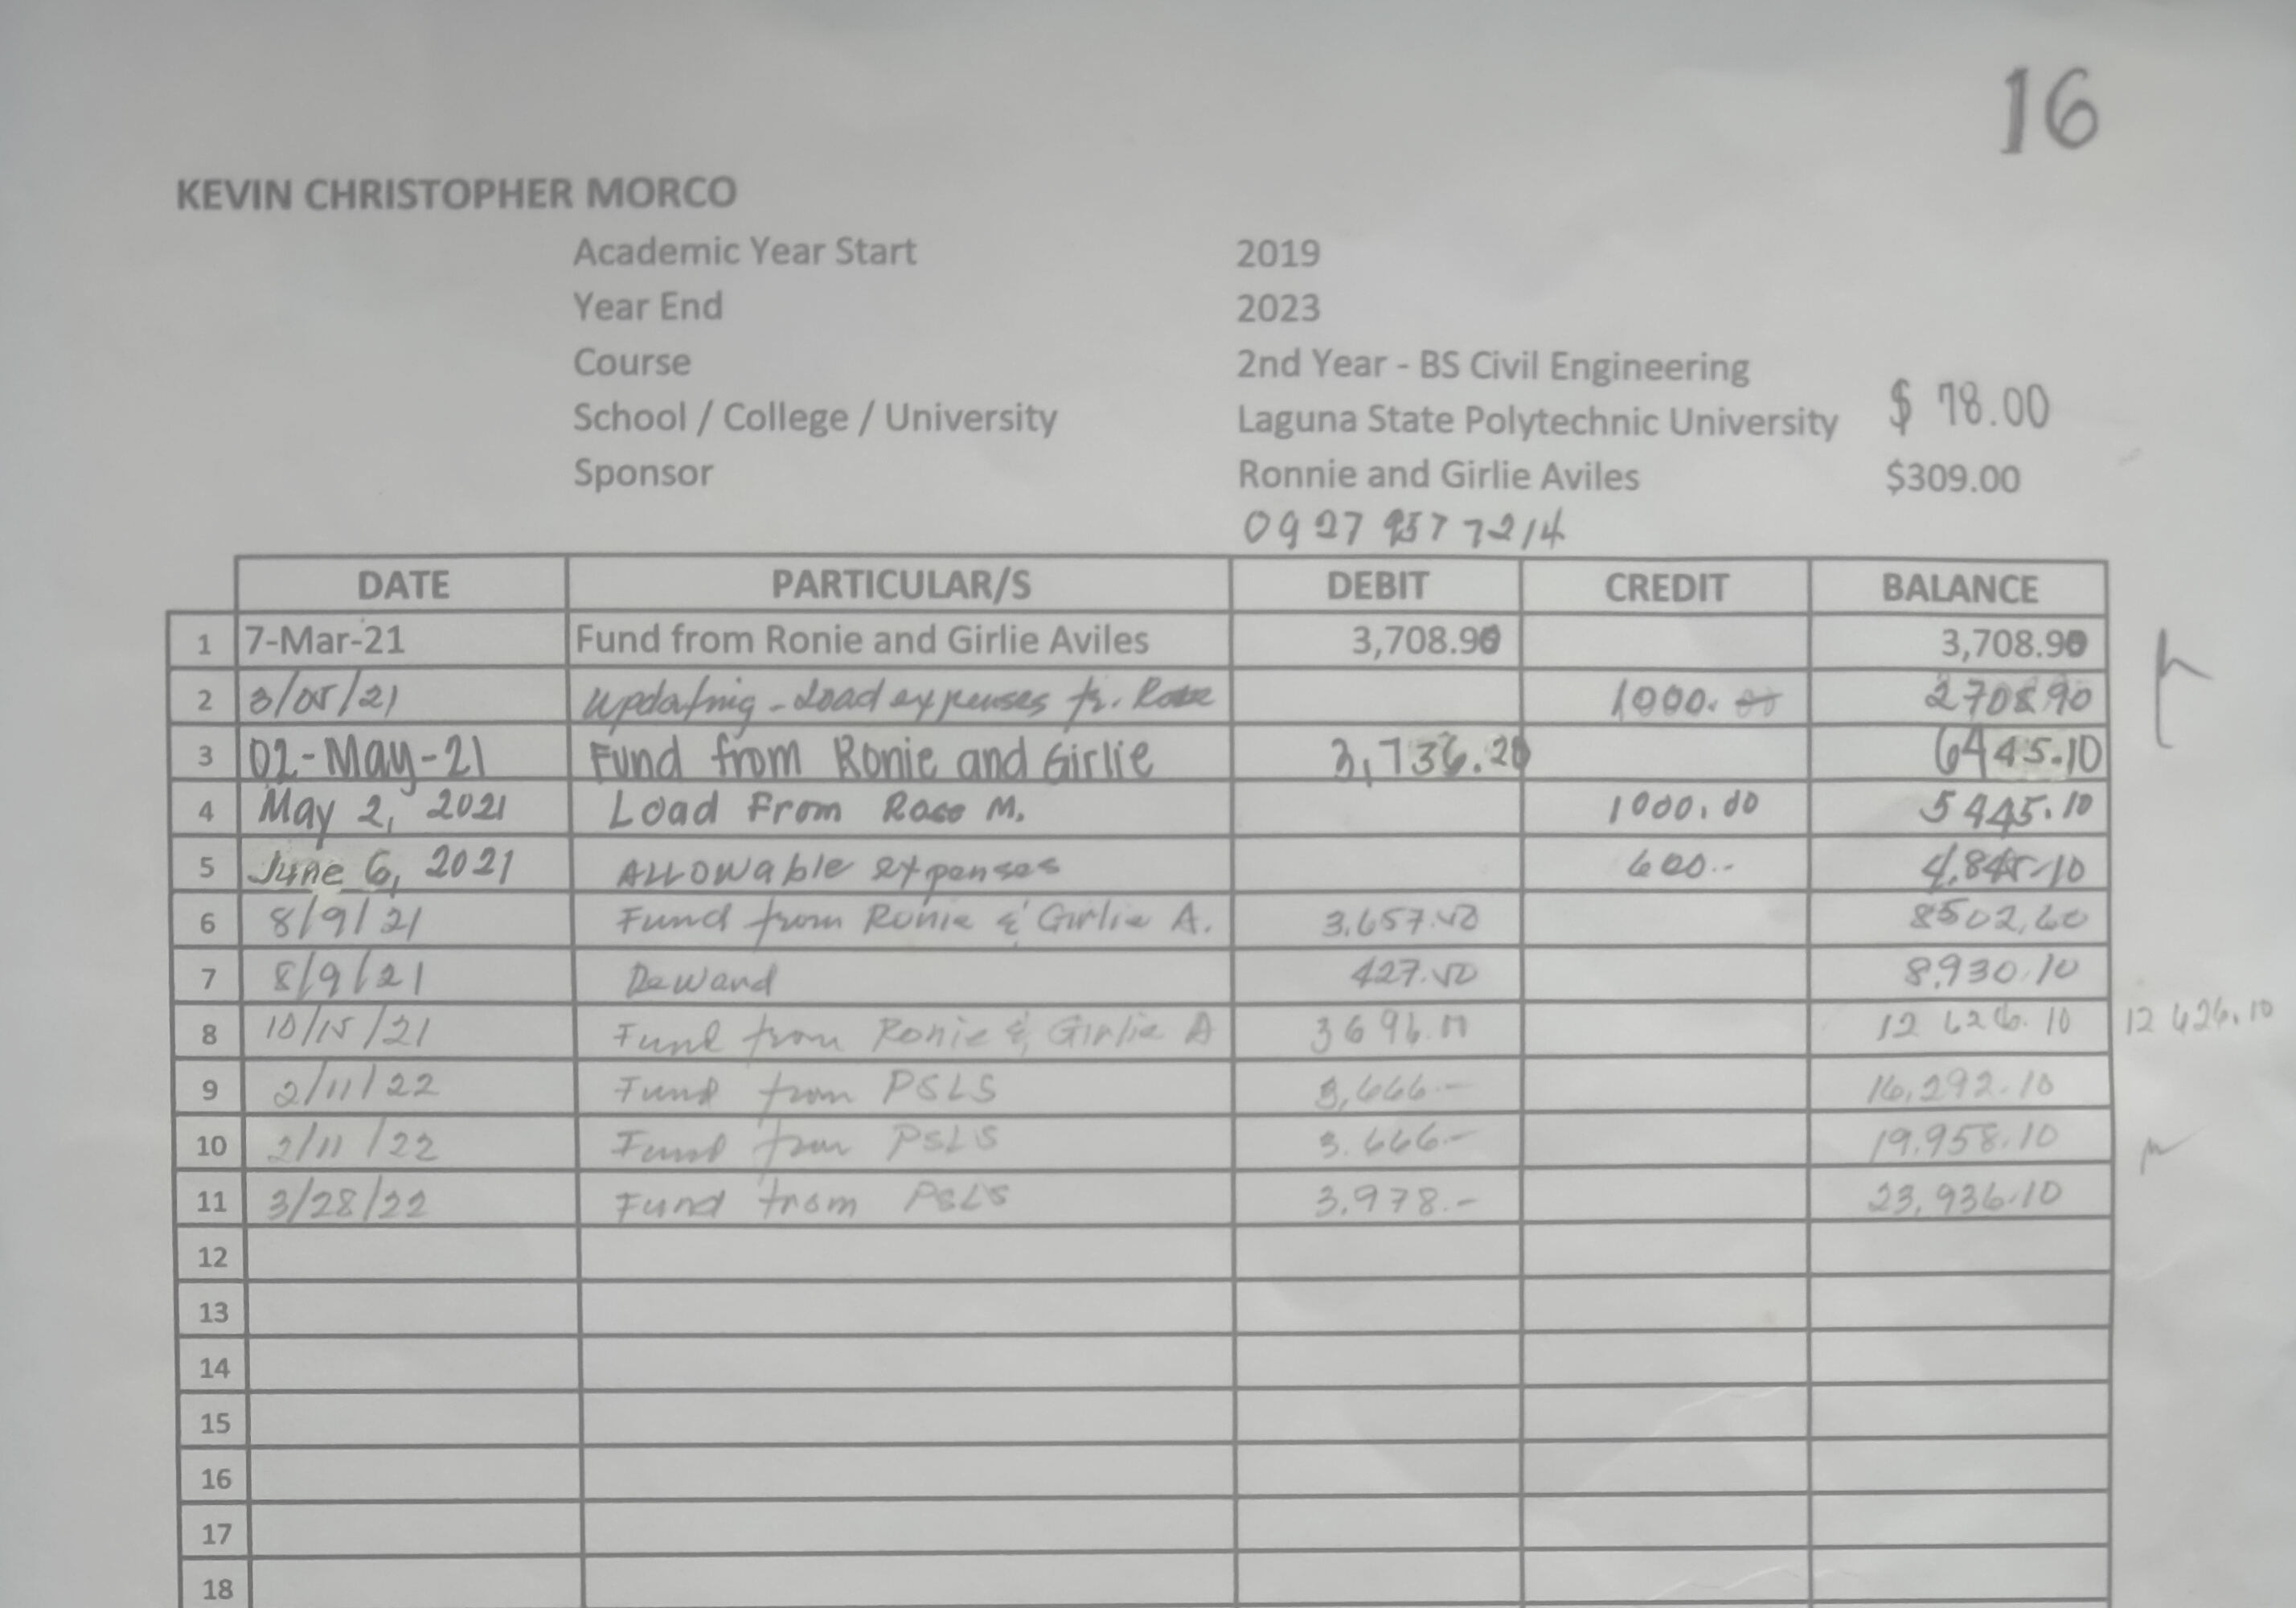 16
KEVIN CHRISTOPHER MORCO
Academic Year Start 2019
Year End 2023
Course 2nd Year - BS Civil Engineering
$ 78.00
School / College / University Laguna State Polytechnic University
Sponsor Ronnie and Girlie Aviles $309.00
0927 957 7214
DATE PARTICULAR/S DEBIT CREDIT BALANCE
1 7-Mar-21 Fund from Ronie and Girlie Aviles 3,708.90 3,708.90
2 3/05/21 Updating - Load expenses fr. Rose 1000.00 2708.90
3 02-May-21 Fund from Ronie and Girlie 3,736.20 6445.10
4 May 2, 2021 Load From Rose M. 1000.00 5445.10
5 June 6, 2021 Allowable expenses 600.- 4,845.10
6 8/9/21 Fund from Ronie & Girlie A. 3,657.50 8502.60
7 8/9/21 427.50 8,930.10
8 10/15/21 Fund from Ronie & Girlie A 3696.00 12 626.10 12 626.10
9 2/11/22 Fund from PSLS 3,666.- 16,292.10
10 2/11/22 Fund from PSLS 3.666.- 19.958.10
11 3/28/22 Fund from PSLS 3,978.- 23,936.10
12
13
14
15
16
17
18